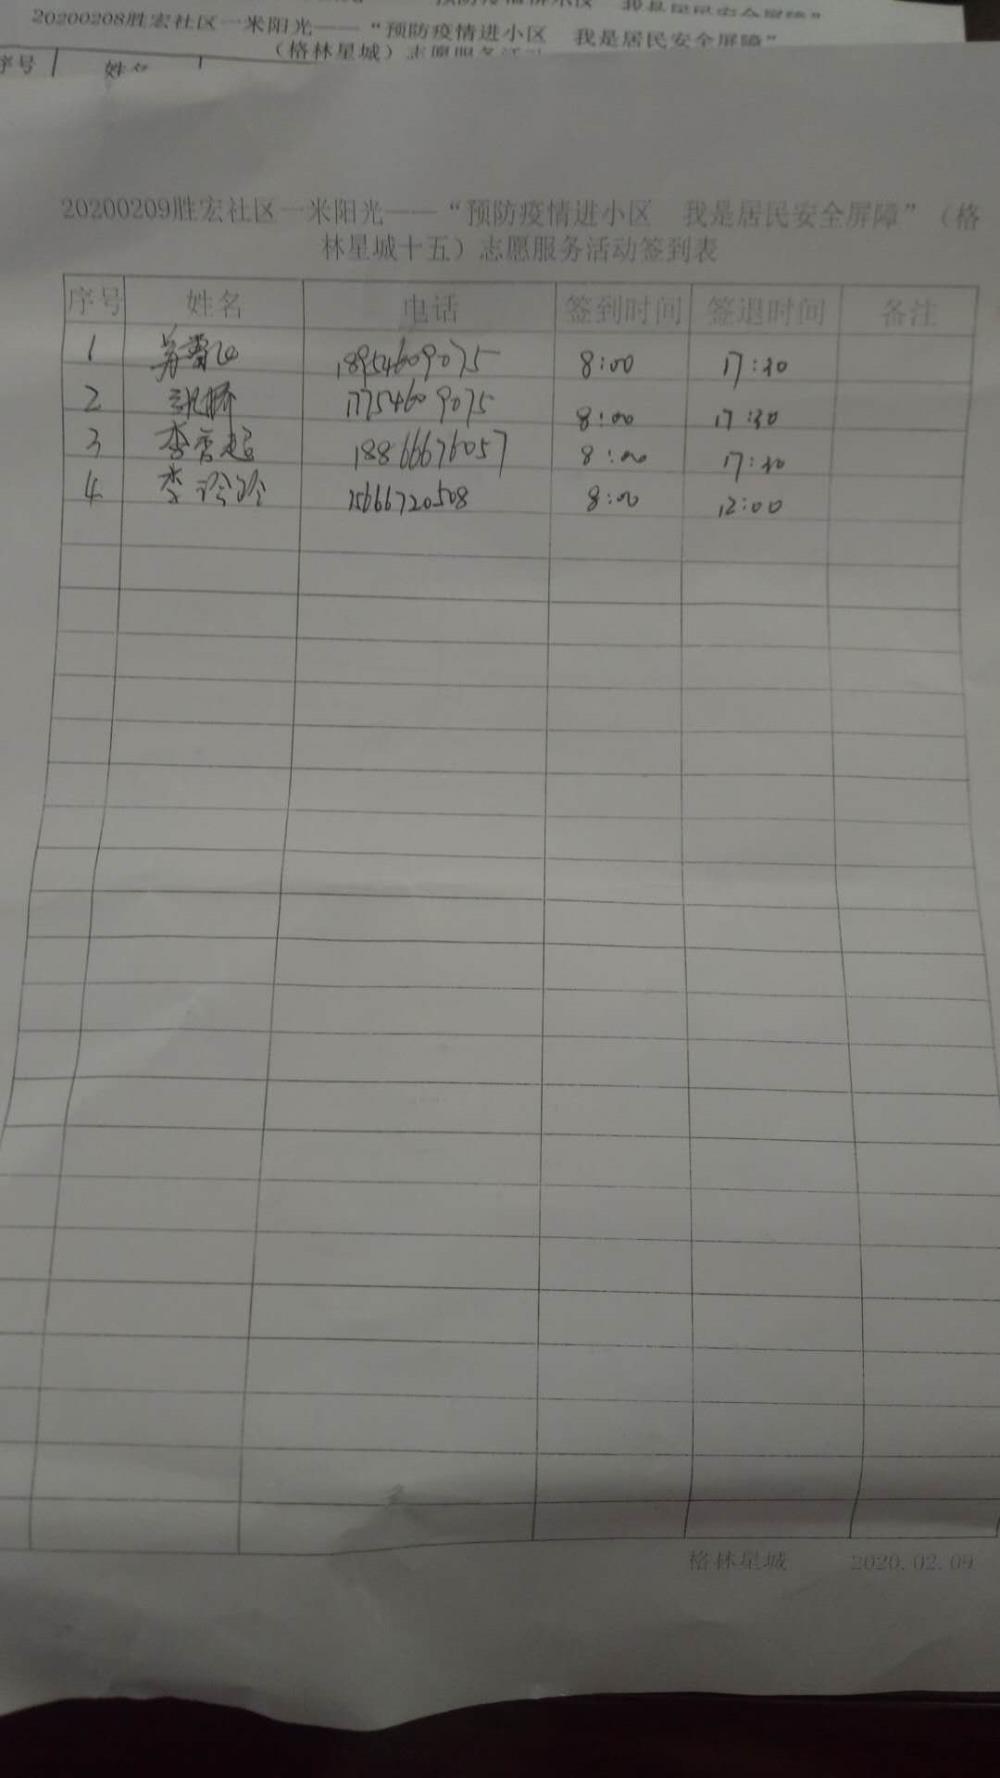 20200208胜宏社区一米阳光——“预防疫情进小区 我是居民安全屏障”
（格林星城）志愿服务活动
序号 姓名
20200209胜宏社区一米阳光——“预防疫情进小区 我是居民安全屏障”（格
林星城十五）志愿服务活动签到表
序号 姓名 电话 签到时间 签退时间 备注
1 18954609075 8:00 17:30
2 17754609075 8:00 17:30
3 李秀起 18866676057 8:00 17:30
4 李玲玲 15666720508 8:00 12:00
格林星城 2020.02.09